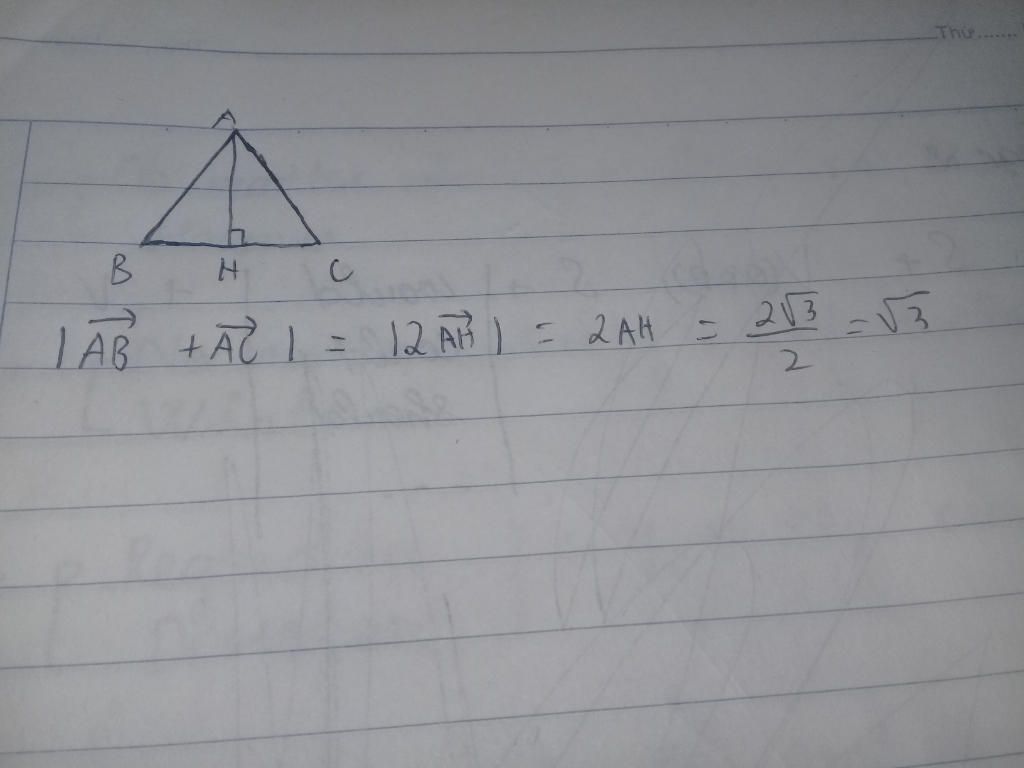 Thứ.......
A
B H C
|\overrightarrow{AB} + \overrightarrow{AC}| = |2\overrightarrow{AH}| = 2AH = \frac{2\sqrt{3}}{2} = \sqrt{3}